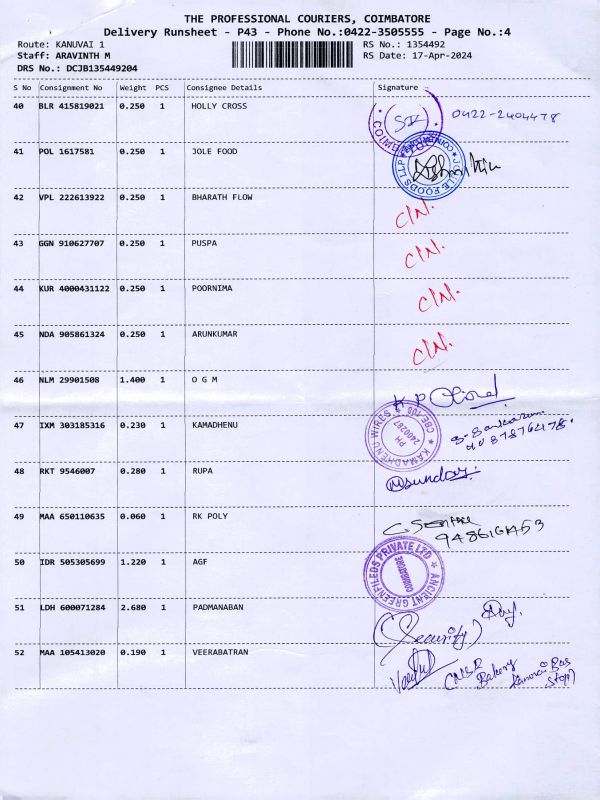 THE PROFESSIONAL COURIERS, COIMBATORE
Delivery Runsheet - P43 - Phone No.:0422-3505555 - Page No.:4
Route: KANUVAI 1 RS No.: 1354492
Staff: ARAVINTH M RS Date: 17-Apr-2024
DRS No.: DCJB135449204
S No Consignment No Weight PCS Consignee Details Signature
40 BLR 415819021 0.250 1 HOLLY CROSS 0422-2404478
41 POL 1617581 0.250 1 JOLE FOOD JOLE FOODS LLP
42 VPL 222613922 0.250 1 BHARATH FLOW C/N.
43 GGN 910627707 0.250 1 PUSPA C/N.
44 KUR 4000431122 0.250 1 POORNIMA C/N.
45 NDA 905861324 0.250 1 ARUNKUMAR C/N.
46 NLM 29901508 1.400 1 O G M K P
47 IXM 303185316 0.230 1 KAMADHENU KAMADHENU WIRES PH 2400287
48 RKT 9546007 0.280 1 RUPA
49 MAA 650110635 0.060 1 RK POLY
50 IDR 505305699 1.220 1 AGF ANCIENT GREENFIELDS PRIVATE LTD COIMBATORE
51 LDH 600071284 2.680 1 PADMANABAN (Security)
52 MAA 105413020 0.190 1 VEERABATRAN Bakery Bus Stop)